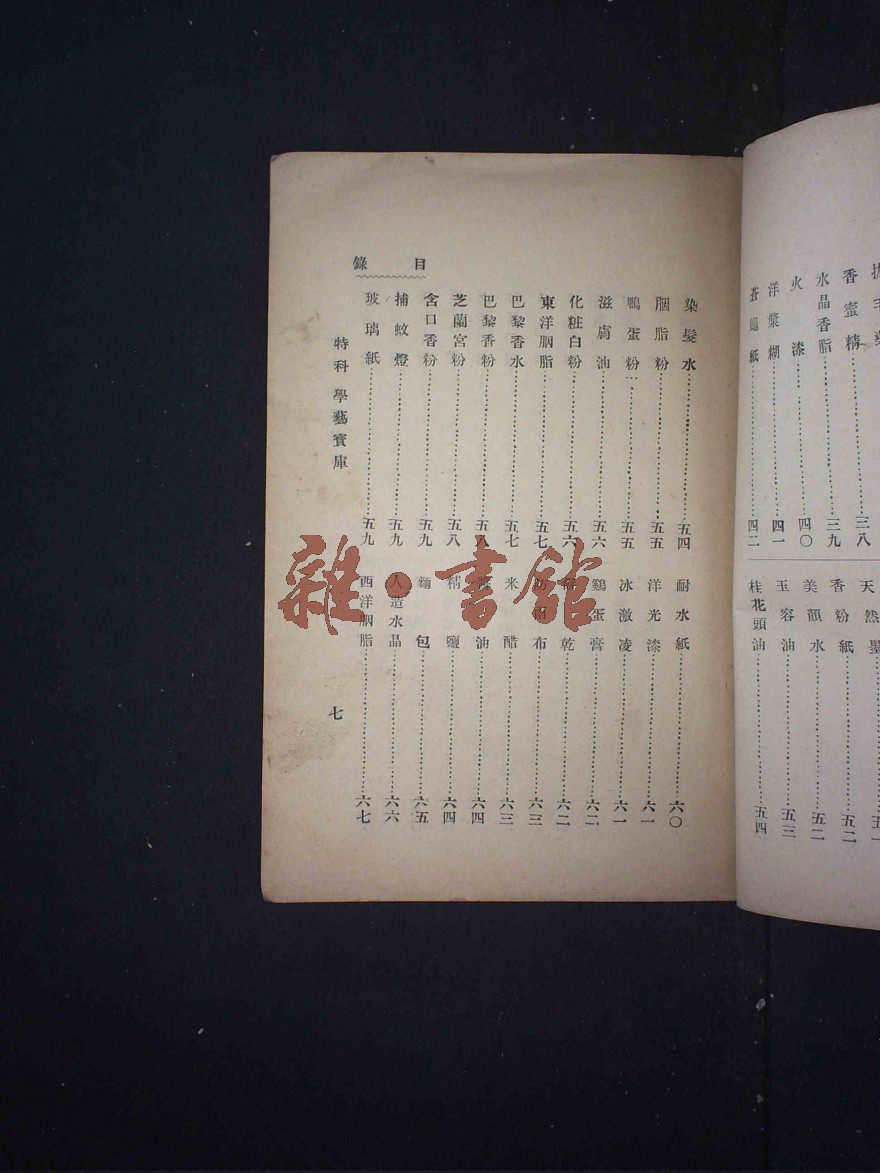 香蜜精……三八
水晶香脂……三九
火漆……四〇
洋漿糊……四一
蒼蠅紙……四二
天然墨
香粉紙……五二
美顏水……五二
玉容油……五三
桂花頭油……五四
目錄
染髮水……五四
胭脂粉……五五
鴨蛋粉……五五
滋膚油……五六
化粧白粉……五六
東洋胭脂……五七
巴黎香水……五七
巴黎香粉……五八
芝蘭宮粉……五八
含口香粉……五九
捕蚊燈……五九
玻璃紙……五九
耐水紙……六〇
洋光漆……六一
冰激凌……六一
鷄蛋膏……六二
乾……六二
布……六三
米醋……六三
油……六四
精鹽……六四
麵包……六五
人造水晶……六六
西洋胭脂……六七
特科學藝寶庫
七
雜·書舘